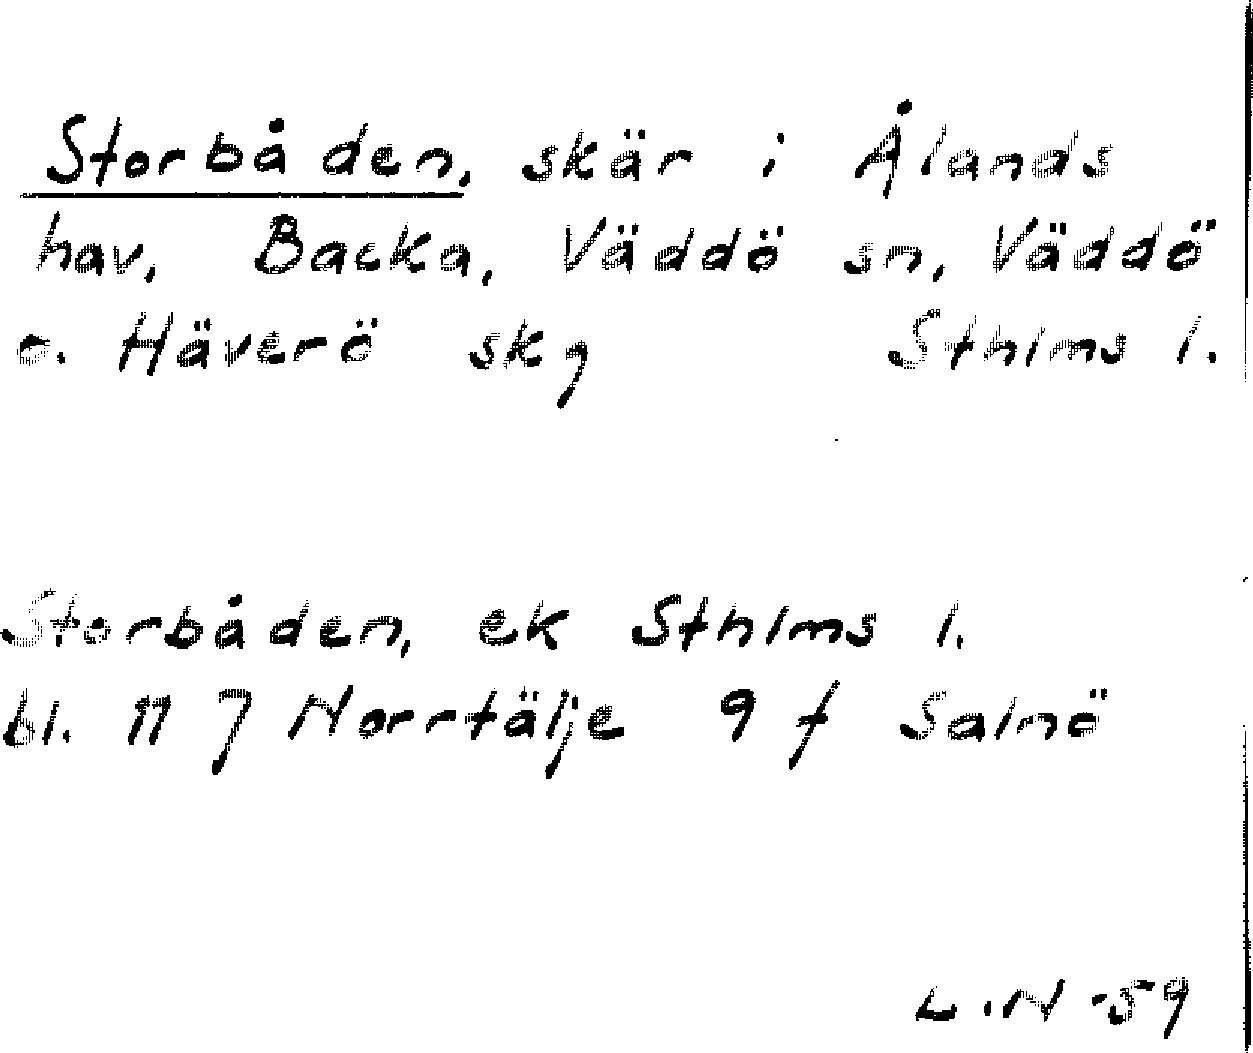 Storbåden, skär i Ålands
hav, Backa, Väddö sn, Väddö
o. Häverö skg Sthlms l.
Storbåden, ek Sthlms l.
bl. 11 J Norrtälje 9 f Salnö
L.N -59